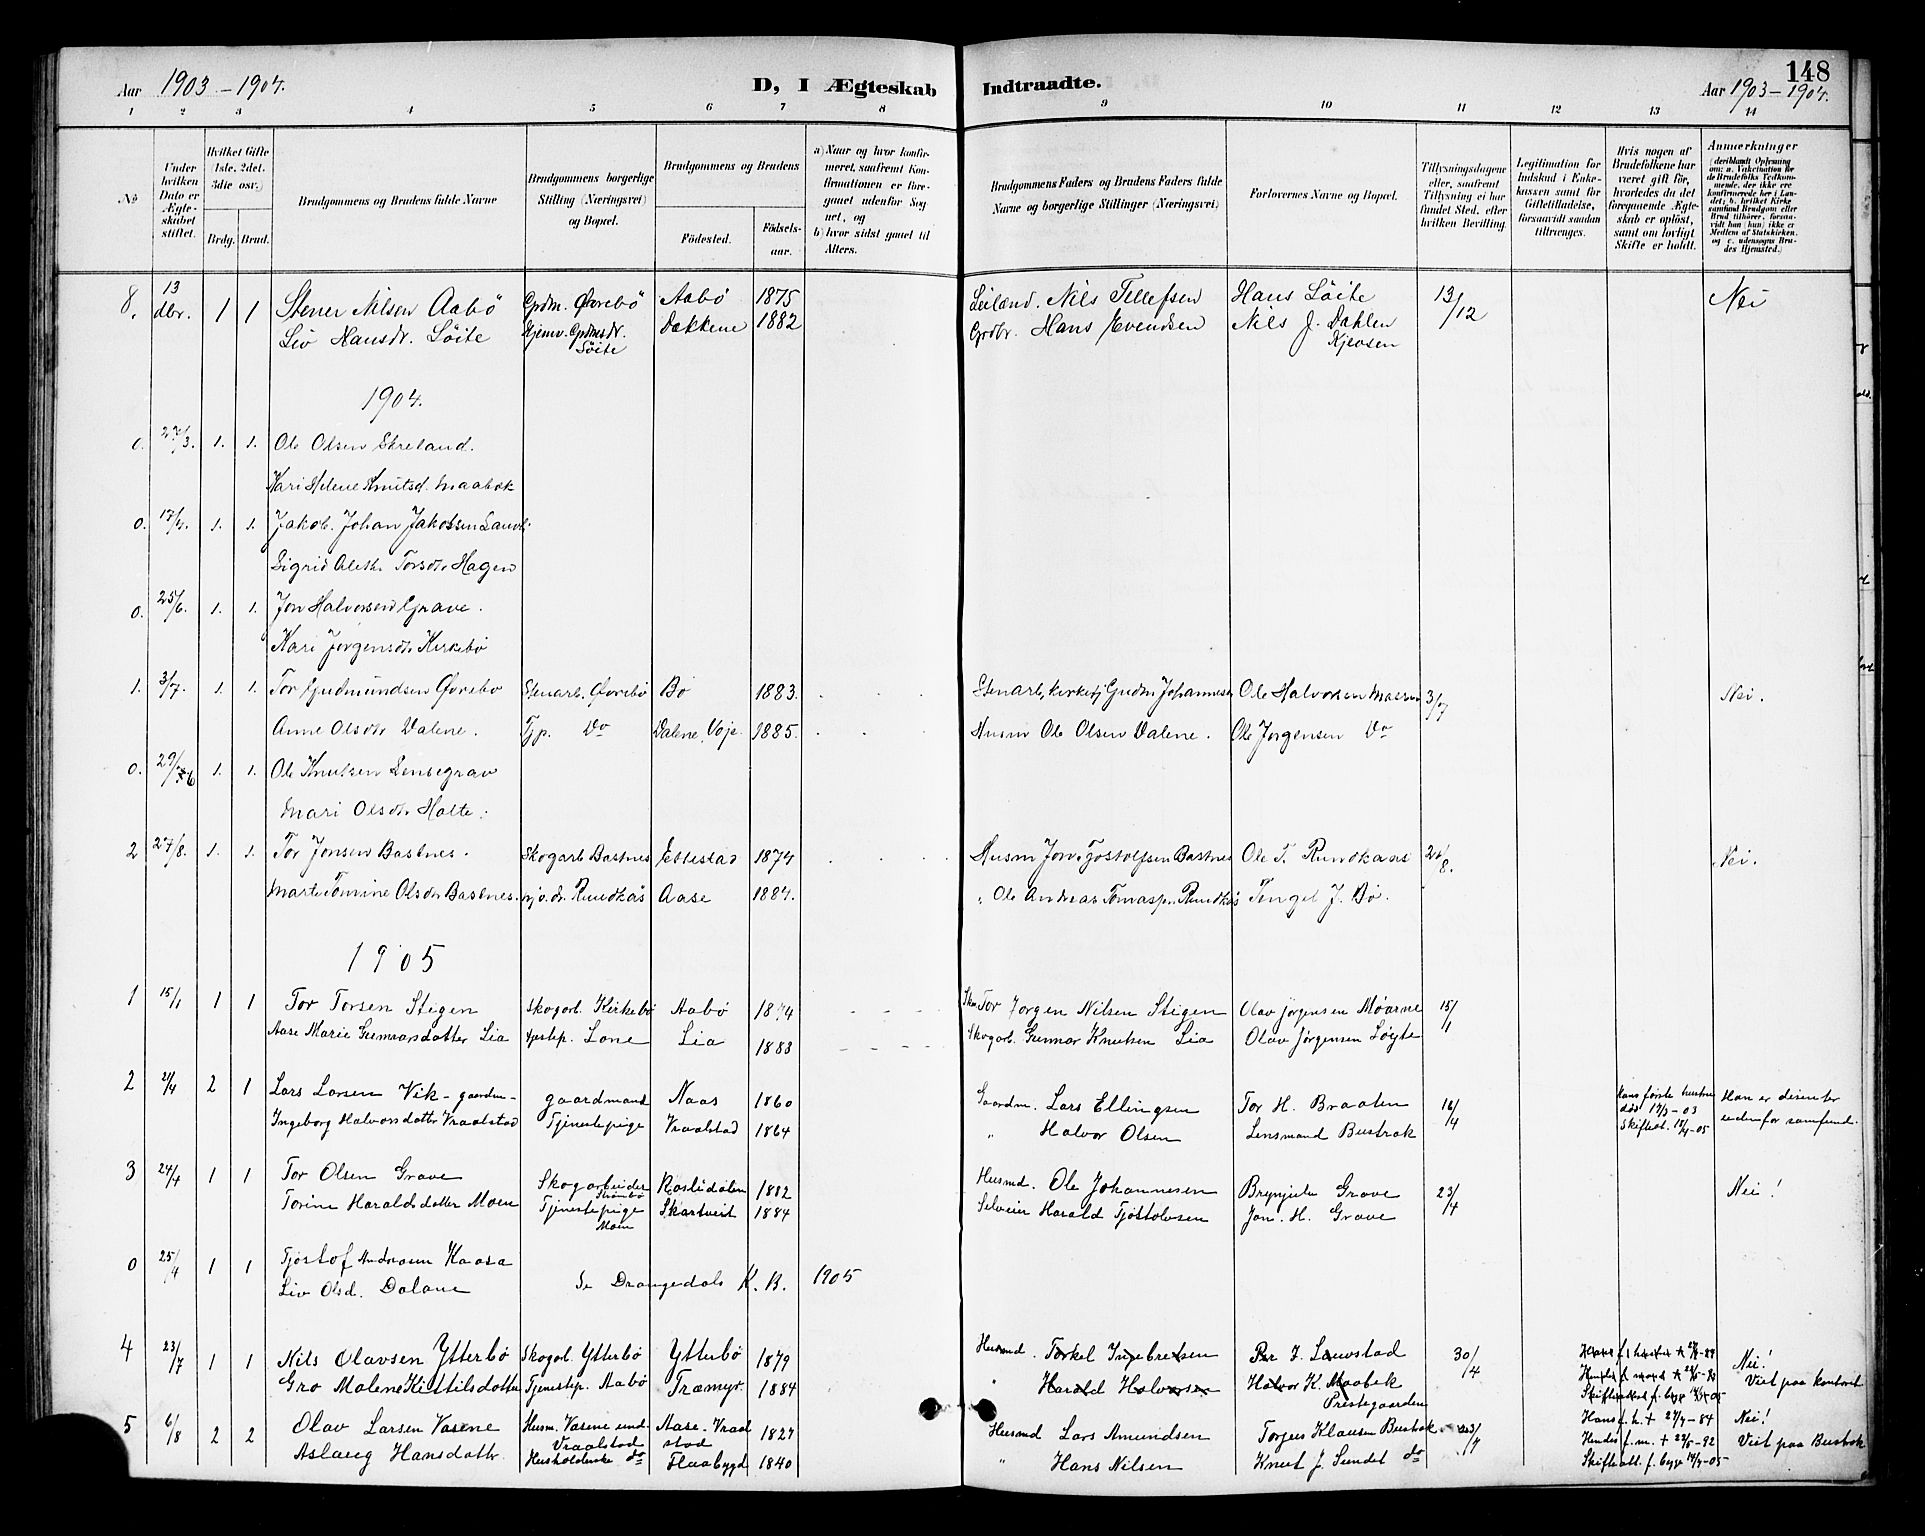 148
Aar 1903 – 1904.
D, I Ægteskab Indtraadte.
Aar 1903 – 1904.
1 2 3 4 5 6 7 8 9 10 11 12 13 14
No
Under hvilken Dato er Ægteskabet stiftet.
Hvilket Gifte (1ste. 2det. 3die osv.)
Brdg. Brud.
Brudgommens og Brudens fulde Navne
Brudgommens borgerlige Stilling (Næringsvei) og Bopæl.
Brudgommens og Brudens
Födested.
Födselsaar.
a) Naar og hvor konfirmeret, saafremt Konfirmationen er foregaaet udenfor Sognet, og
b) hvor sidst gaaet til Alters.
Brudgommens Faders og Brudens Faders fulde Navne og borgerlige Stillinger (Næringsvei)
Forlovernes Navne og Bopæl.
Tillysningsdagene eller, saafremt Tillysning ei har fundet Sted, efter hvilken Bevilling.
Legitimation for Indskud i Enkekassen samt for Giftetilladelse, forsaavidt saadan tiltrænges.
Hvis nogen af Brudefolkene har været gift för, hvorledes da det foregaaende Ægteskab er oplöst, samt om lovligt Skifte er holdt.
Anmerkninger
8. 13 dbr. 1 1 Stener Nilsen Aabö Grdm. Øvrebö Aabö 1875 Leilænd. Nils Tellefsen Hans Löite 13/12 Nei
Liv Hansdr. Löite Hjemv. Grdmsdr. Löite Dakkene 1882 Grdbr. Hans Evendsen Nils J. Dahlen Kjeosen
1904.
0. 27/3. 1. 1. Ole Olsen Skreland.
Kari Helene Knutsd. Maabæk
0. 17/4. 1. 1. Jakob Johan Jakobsen
Sigrid Aleth. Torsdtr Hagen
0. 25/6. 1. 1. Jon Halvorsen Grave.
Kari Jørgensdtr Kirkebö
1. 3/7. 1. 1. Tor Gudmundsen Øvrebø Stenarb. Øvrebö Bø 1883. Stenarb, Kirketj Gudm Johannes Ole Halvorsen 3/7 Nei.
Anne Olsdtr Dalene. Tjp. Do Dalene, Voje. 1885. Husm Ole Olsen Dalene. Ole Jørgensen Do
0. 29/6 1. 1. Ole Knutsen
Mari Olsdtr Holte.
2 27/8. 1. 1. Tor Jonsen Bastnes. Skogarb Bastnes Ettestad 1874 Husm Jon Tjostolfsen Bastnes Ole T. Rundkaas 8. Nei.
Marte Tomine Olsdtr Bastnes. Rundkås Aase 1884. " Ole Andreas Tomasp. Rundkås Tengel J. Bö.
1905
1 15/1 1 1 Tor Torsen Stigen Skogarb. Kirkebø Aabø 1874 Tor Jørgen Nilsen Stigen Olav Jørgensen Møarne 15/1
Aase Marie Gunnarsdatter Lia tjenstep. Lone Lia 1883 Skogarb. Gunnar Knutsen Lia Olav Jørgensen Løyte
2 21/4 2 1 Lars Larsen Vik – gaardm – gaardmand Naas 1860 Gaardm. Lars Ellingsen Tor H. Braaten 16/4 Hans første hustru død 17/3 – 03 Skifteat. 15/4 – 05 Han er disenter udenfor samfund.
Ingeborg Halvorsdatter Vraalstad Tjenestepige Vraalstad 1864 " Halvor Olsen Lensmand Bustrak
3 24/4 1 1 Tor Olsen Grave Skogarbeider 1882 Husmd. Ole Johannesen Brynjulv Grave 23/4 Nei!
Torine Haraldsdatter Moen Tjenestepige Moen Skartveit 1884 Selveier Harald Tjøstolvsen Jon. H. Grave
0 25/4 1 1 Tjøstof Andreasen Kaasa
Liv Olsd. Dalane Se Drangedals K. B. 1905
4 23/7 1 1 Nils Olavsen Ytterbø Skogarb. Ytterbø Ytterbø 1879 Husmd. Torkel Ingebretsen Per J. Lauvstad 30/4 Nei! Viet paa kontoret
Gro Malene Kittilsdotter Tjenestep. Aabø Træmyr. 1884 " Harald Halvorsen Halvor K. Maabek Prestegaarden
5 6/8 2 2 Olav Larsen Vasene Husm. Vasene und. Vraalstad Aase. Vraalstad 1827 Husmd Lars Amundsen Torjus Klausen Bustrak 23/7 Hans f. h. + 27/7 – 84 Nei!
Aslaug Hansdatter Husholderske do Flaabygd 1840 " Hans Nilsen Knut J. Sundet do Hendes f. m. + 22/5 – 92 Viet paa Bustrak
Skifteatt. f. byge 14/7 – 05